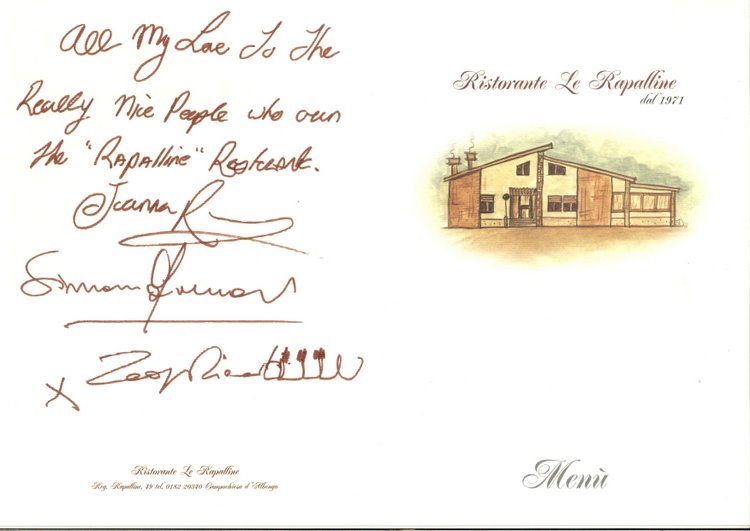 All My Love To The
Really Nice People who own
the "Rapalline" Restaurant.
Joanna
Simon
x
Ristorante Le Rapalline
Reg. Rapalline, 49 tel. 0182 20340 Campochiesa d'Albenga
Ristorante Le Rapalline
dal 1971
Menù